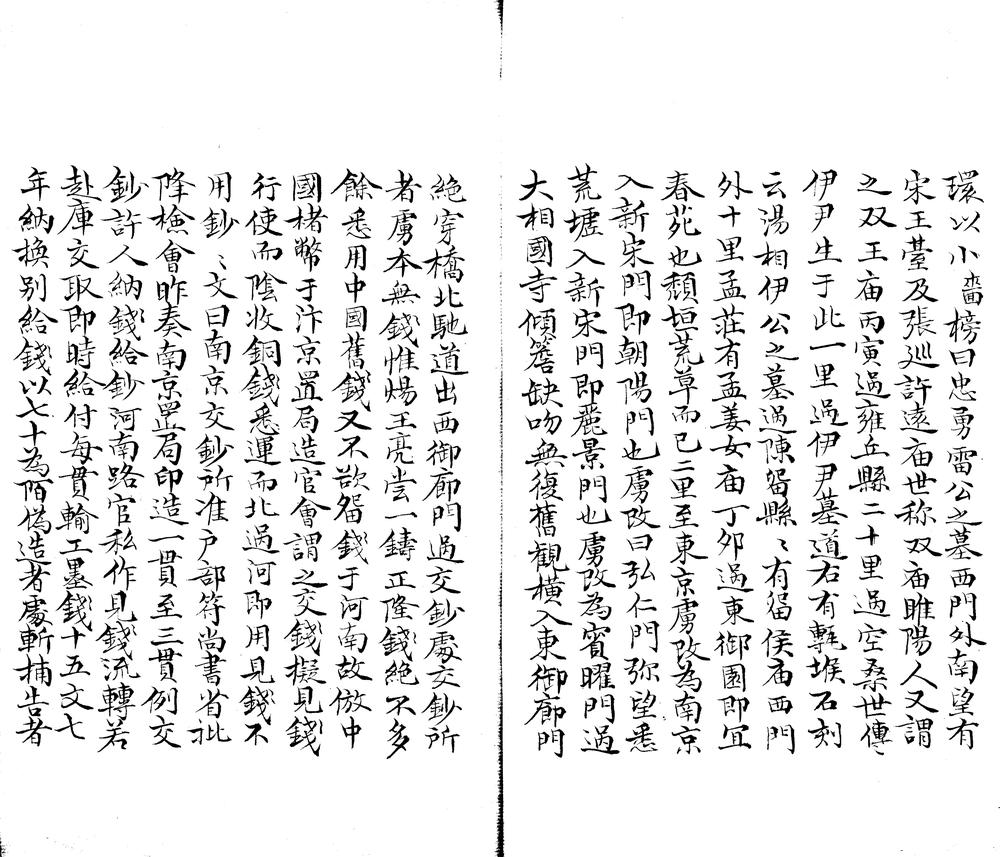 環以小啚榜曰忠勇雷公之墓西門外南望有
宋王䑓及張廵許遠庙世称双庙睢陽人又謂
之双王庙丙寅過雍丘縣二十里過空桑世傳
伊尹生于此一里過伊尹墓道右有甎堠石刻
云湯相伊公之墓過陳畱縣〻有畱侯庙西門
外十里孟莊有孟姜女庙丁夘過東御園即宜
春苑也頹垣荒草而已二里至東京虜改為南京
入新宋門即朝陽門也虜改曰弘仁門弥望悉
荒墟入新宋門即麗景門也虜改為賓曜門過
大相國寺傾簷缺吻無復舊觀橫入東御廊門
絶穿橋北馳道出西御廊門過交鈔處交鈔所
者虜本無錢惟煬王亮嘗一鑄正隆錢絶不多
餘悉用中國舊錢又不欲畱錢于河南故倣中
國楮幣于汴京置局造官會謂之交錢擬見錢
行使而陰收銅錢悉運而北過河即用見錢不
用鈔〻文曰南京交鈔所准户部符尚書省批
降檢會昨奏南京置局印造一貫至三貫例交
鈔許人納錢給鈔河南路官私作見錢流轉若
赴庫交取即時給付每貫輸工墨錢十五文七
年納換别給錢以七十為陌偽造者處斬捕告者